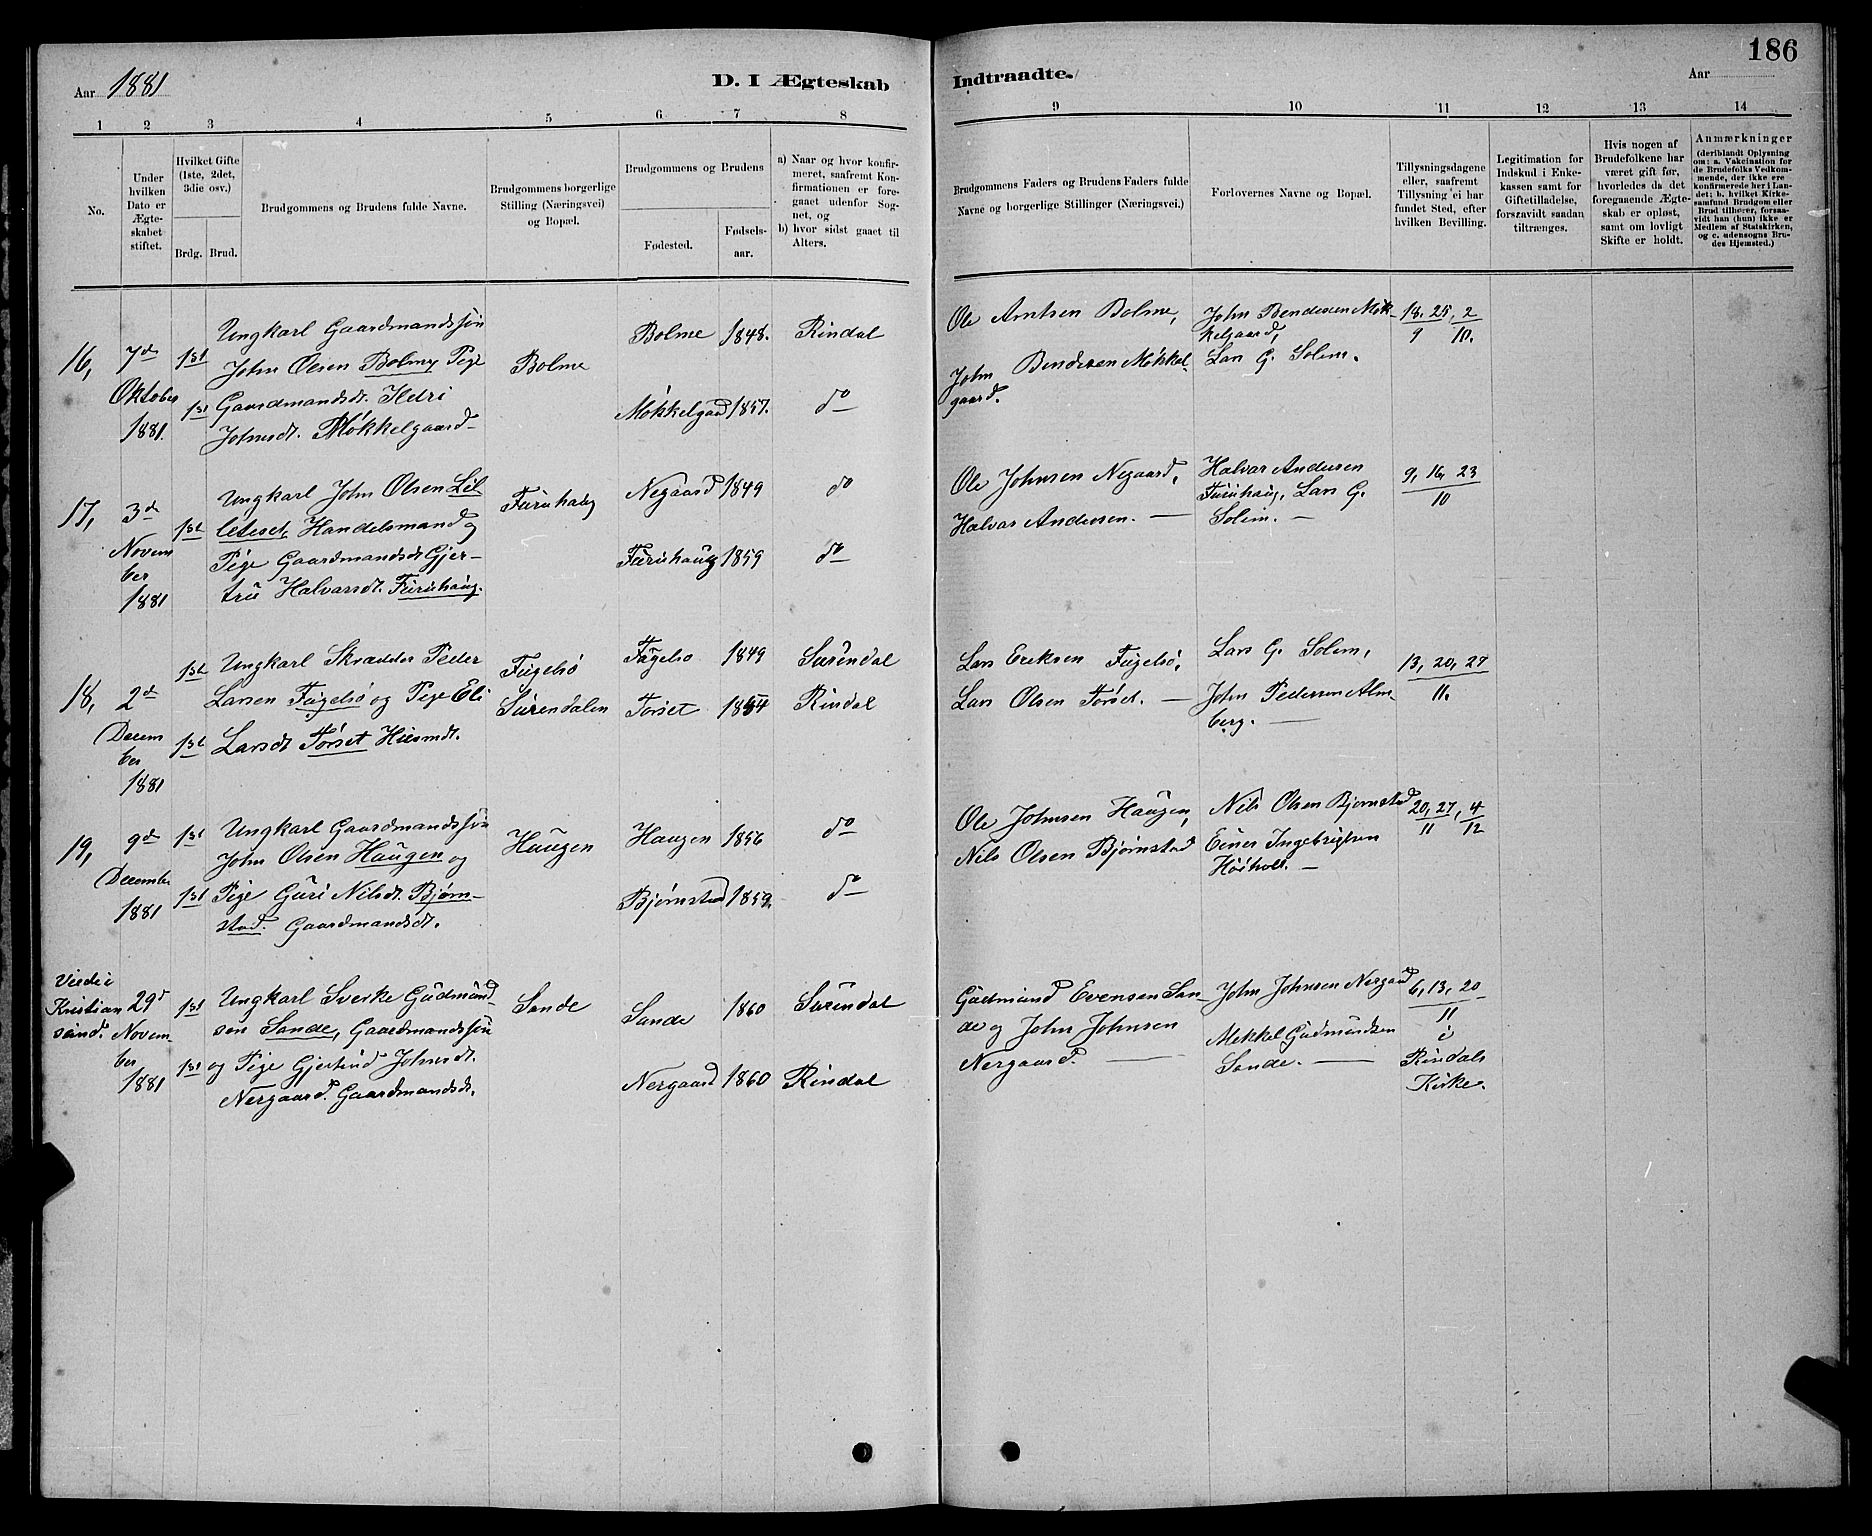 186
Aar 1881
D. I Ægteskab
Indtraadte.
Aar
1 2 3 4 5 6 7 8
9 10 11 12 13 14
No.
Under
hvilken
Dato er
Ægte-
skabet
stiftet.
Hvilket Gifte
(1ste, 2det,
3die osv.)
Brdg. Brud.
Brudgommens og Brudens fulde Navne.
Brudgommens borgerlige
Stilling (Næringsvei)
og Bopæl.
Brudgommens og Brudens
Fødested.
Fødsels-
aar.
a) Naar og hvor konfir-
meret, saafremt Kon-
firmationen er fore-
gaaet udenfor Sog-
net, og
b) hvor sidst gaaet til
Alters.
Brudgommens Faders og Brudens Faders fulde
Navne og borgerlige Stillinger (Næringsvei.)
Forlovernes Navne og Bopæl.
Tillysningsdagene
eller, saafremt
Tillysning ei har
fundet Sted, efter
hvilken Bevilling.
Legitimation for
Indskud i Enke-
kassen samt for
Giftetilladelse,
forszavidt saadan
tiltrænges.
Hvis nogen af
Brudefolkene har
været gift før,
hvorledes da det
foregaaende Ægte-
skab er opløst,
samt om lovligt
Skifte er holdt.
Anmærkninger
(deriblandt Oplysning
om: a. Vakcination for
de Brudefolks Vedkom-
mende, der ikke ere
konfirmerede her i Lan-
det; b. hvilket Kirke-
samfund Brudgom eller
Brud tilhører, forsaa-
vidt han (hun) ikke er
Medlem af Statskirken,
og c. udensogns Bru-
des Hjemsted.)
16, 7d
Oktober
1881.
1st
1st
Ungkarl Gaardmandssøn
John Olsen Bolme, Pige
Gaardmandsdt. Ildri
Johnsdt. Møkkelgaard
Bolme
Bolme 1848. Rindal
Møkkelgaard 1857. do
Ole Arntsen Bolme,
John Bendixen Møkkel-
gaard.
John Bendixen Møk-
kelgaard,
Lars G. Solem.
18, 25, 2
9 10.
17, 3d
Novem
ber
1881
1st
Ungkarl John Olsen Lil
leteset, Handelsmand og
Pige Gaardmandsdt Gjer-
tru Halvarsdt. Furuhaug.
Furuhaug
Negaard 1849 do
Furuhaug 1859 do
Ole Johnsen Negaard,
Halvar Andersen.
Halvar Andersen
Furuhaug, Lars G.
Solem.
9, 16, 23
10
18, 2d
Decem
ber
1881
1st
1st
Ungkarl Skrædder Peder
Larsen Fugelsø og Pige Eli
Larsdt Tørset Husmdt.
Fugelsø
Surendalen
Fugelsø 1849 Surendal
Tørset 1854 Rindal
Lars Eriksen Fugelsø,
Lars Olsen Tørset.
Lars G. Solem,
John Pedersen Alm
berg.
13, 20, 27
11.
19, 9d
December
1881
1st
1st
Ungkarl Gaardmandssøn
John Olsen Haugen og
Pige Guri Nilsdt. Bjørn-
stad. Gaardmandsdt.
Haugen
Haugen 1856 do
Bjørnstad 1859. do
Ole Johnsen Haugen,
Nils Olsen Bjørnstad
Nils Olsen Bjørnstad
Einer Ingebrigtsen
Høiholt.
20, 27, 4
11 12
Viede i
Kristian
sund.
29d
Novem-
ber
1881
1st
1st
Ungkarl Sverke Gudmund
sen Sande, Gaardmandssøn
og Pige Gjertrud Johnsdt.
Nergaard. Gaardmandsdt.
Sande
Sande 1860 Surendal
Nergaard 1860 Rindal
Gudmund Evensen San
de og John Johnsen
Nergaard.
John Johnsen Nergaard
Mekkel Gudmundsen
Sande.
6, 13, 20
11
i
Rindals
Kirke.